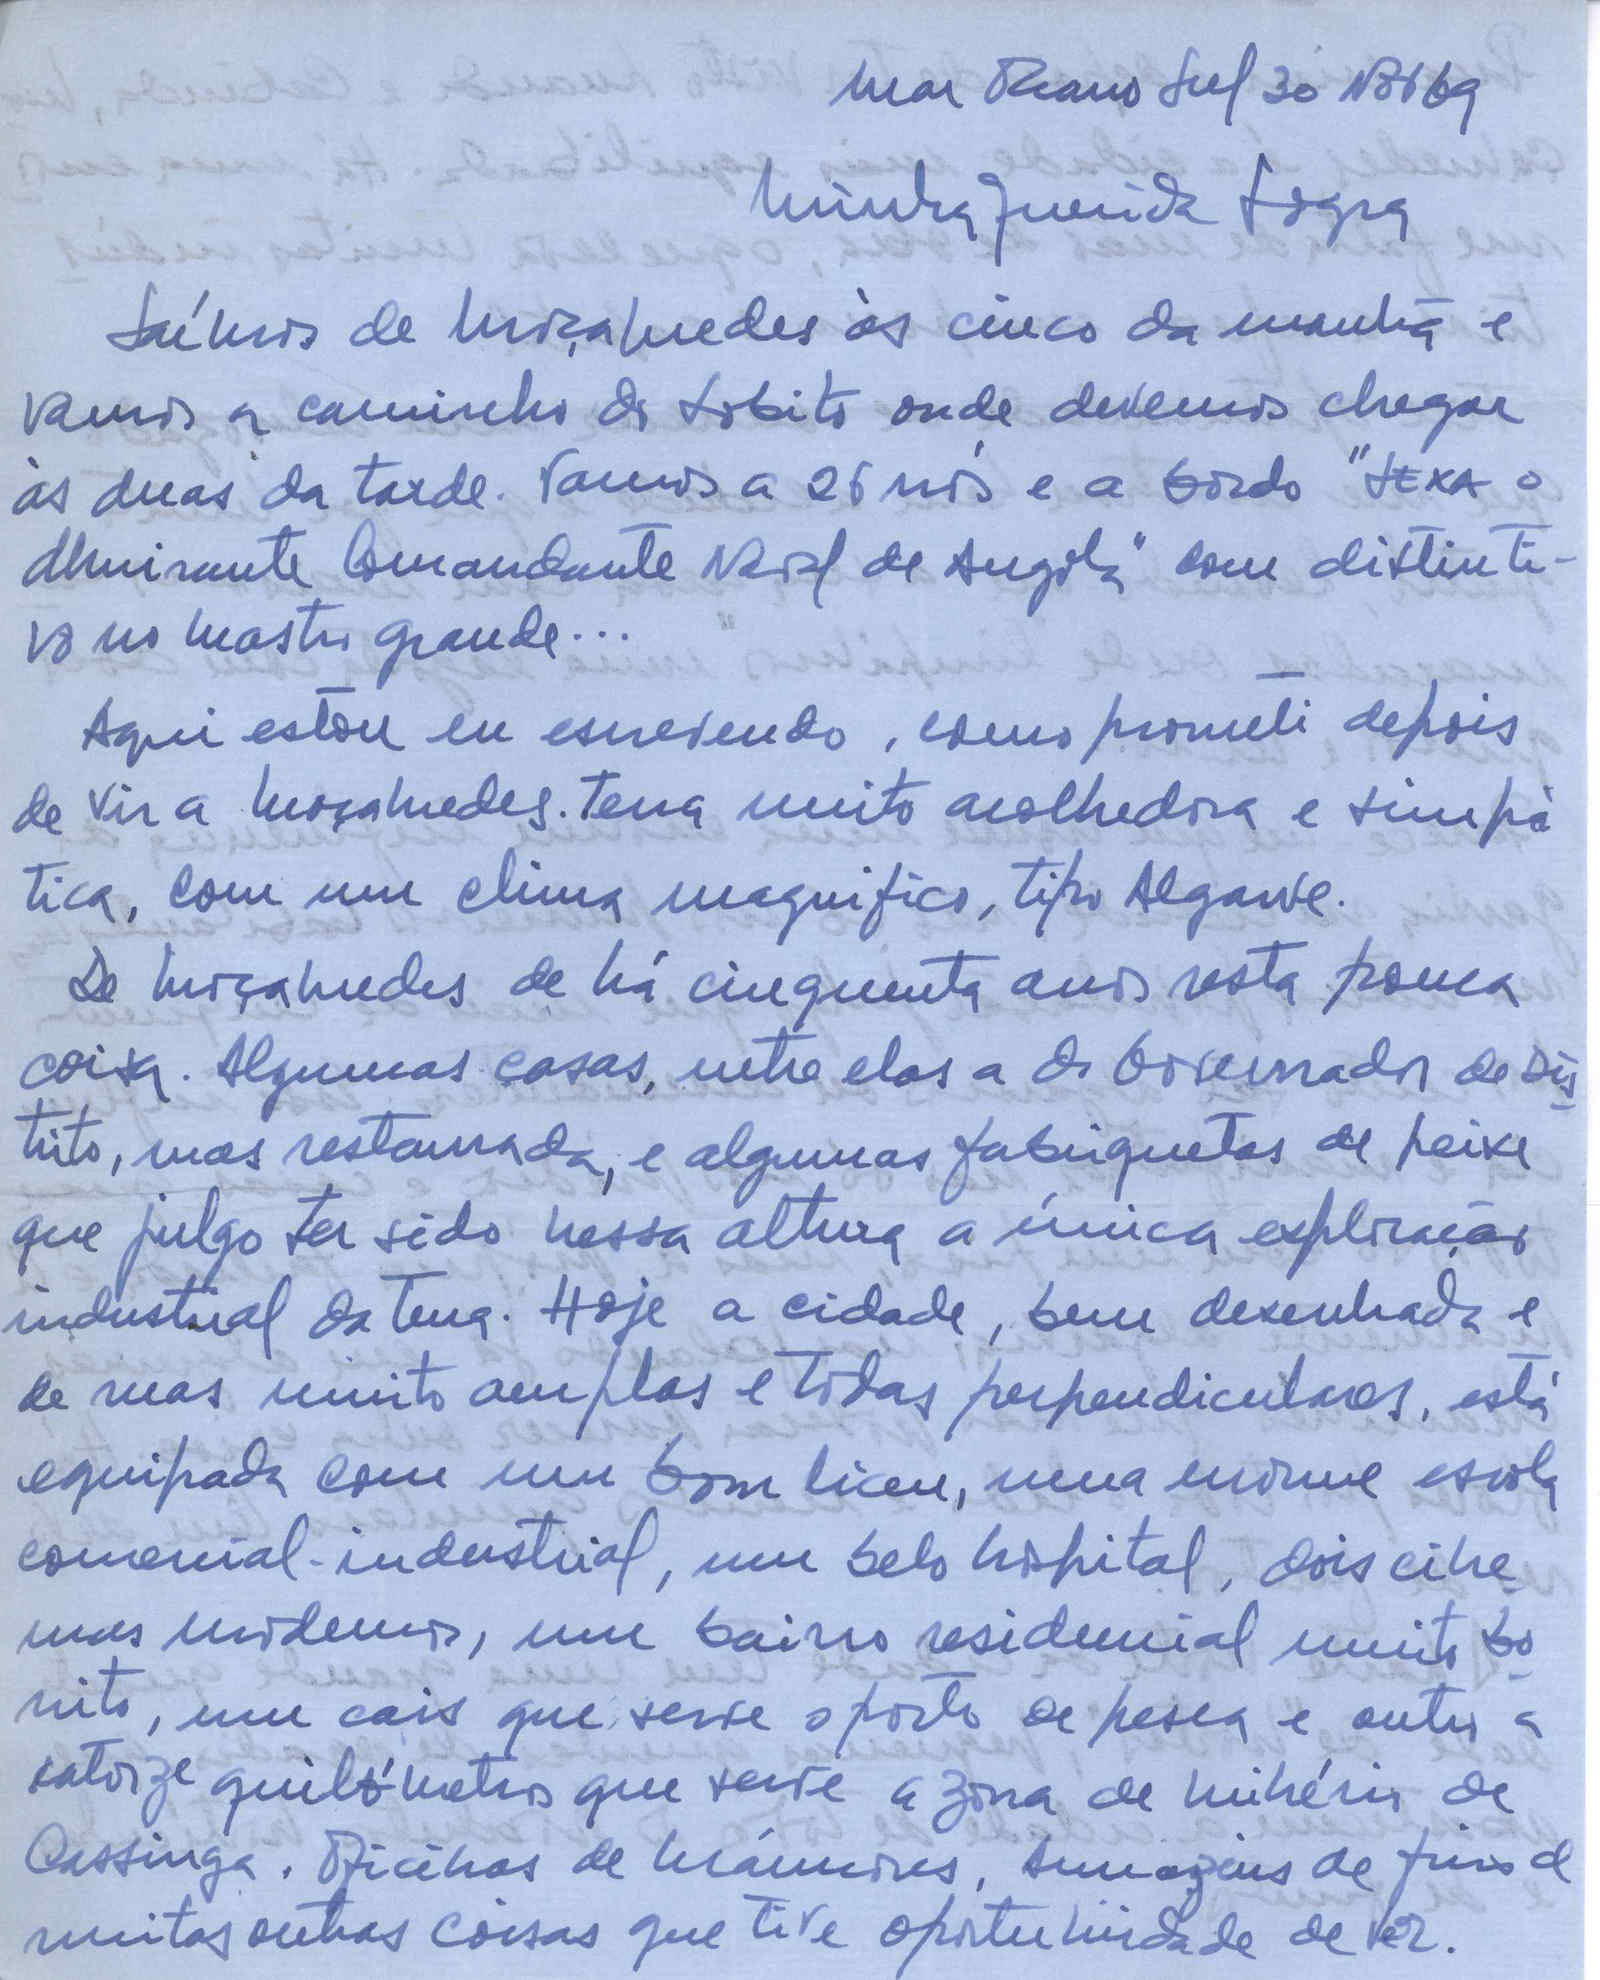 Mar Oceano Sul 30 Nov 69
Minha querida Sogra
Saímos de Moçamedes às cinco da manhã e
vamos a caminho do Lobito onde devemos chegar
às duas da tarde. Vamos a 26 nós e a bordo "SEXA o
Almirante Comandante Naval de Angola" com distinti-
vo no mastro grande...
Aqui estou eu escrevendo, como prometi depois
de vir a Moçamedes. Terra muito acolhedora e simpá
tica, com um clima magnifico, tipo Algarve.
De Moçamedes de há cinquenta anos resta pouca
coisa. Algumas casas, entre elas a do Governador de Dis
trito, mas restaurada, e algumas fabriquetas de peixe
que julgo ter sido nessa altura a única exploração
industrial da terra. Hoje a cidade, bem desenhada e
de ruas muito amplas e todas perpendiculares, está
equipada com um bom liceu, uma enorme escola
comercial-industrial, um belo hospital, dois cine
mas modernos, um bairro residencial muito bo
nito, um cais que serve o porto de pesca e outro a
catorze quilómetros que serve a zona de minério de
Cassinga. Oficinas de mármores, armazens de frio e
muitas outras coisas que tive oportunidade de ver.